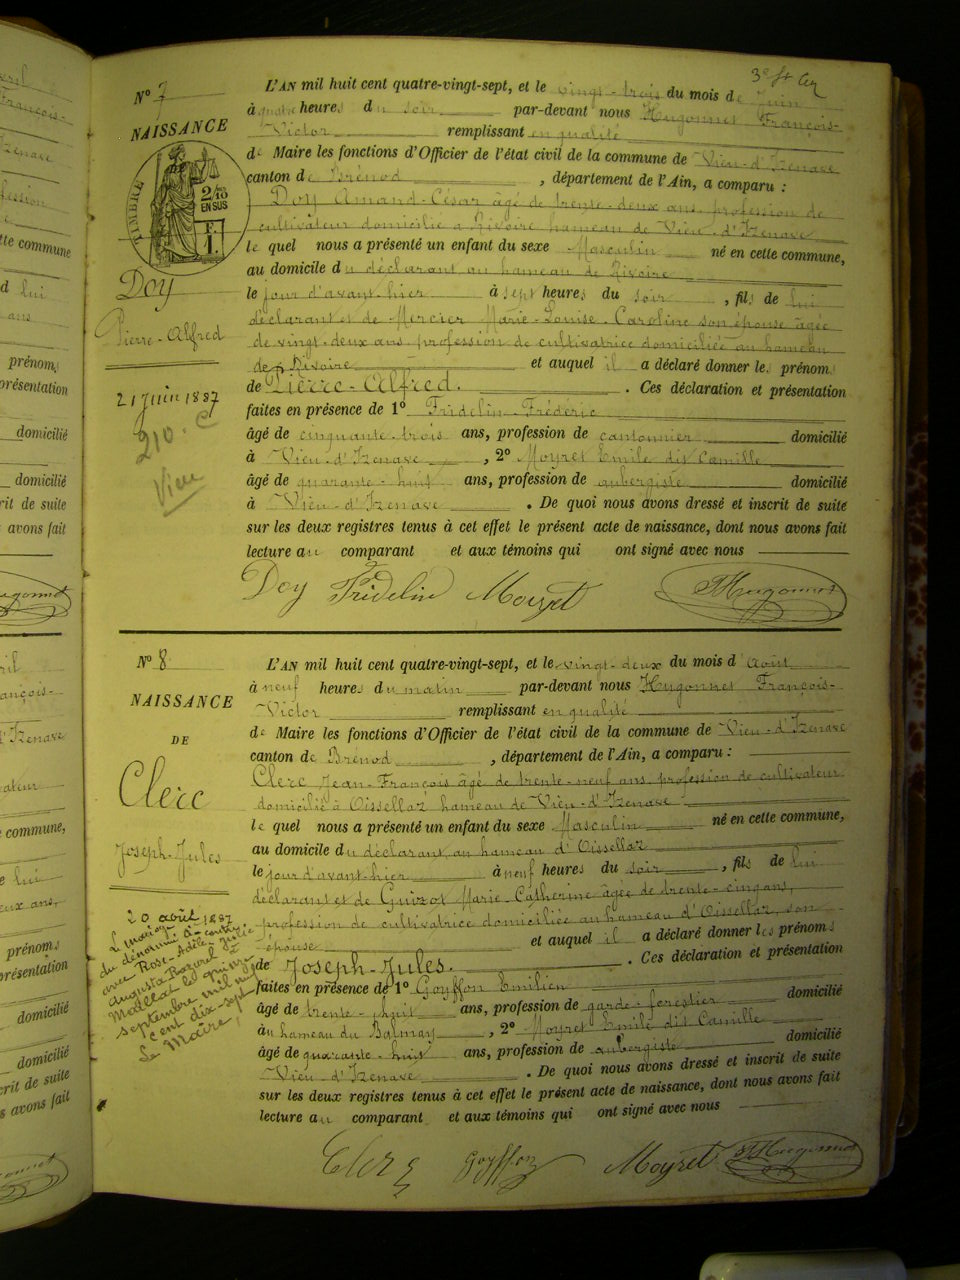 3e ft
N° 7
NAISSANCE
TIMBRE
2/10
EN SUS
F.
1.
Doy
Pierre-Alfred
21 juin 1887
210. C
Vieu
L'AN mil huit cent quatre-vingt-sept, et le vingt-trois du mois de Juin
à quatre heures du soir par-devant nous Hugonnet François-
Victor remplissant en qualité
de Maire les fonctions d'Officier de l'état civil de la commune de Vieu-d'Izenave
canton de Brénod , département de l'Ain, a comparu :
Doy Amand-César âgé de trente-deux ans profession de
cultivateur domicilié à Rivoire hameau de Vieu-d'Izenave
le quel nous a présenté un enfant du sexe Masculin né en cette commune,
au domicile du déclarant au hameau de Rivoire
le jour d'avant-hier à sept heures du soir , fils de lui
déclarant et de Mercier Marie-Louise-Caroline son épouse âgée
de vingt-deux ans profession de cultivatrice domiciliée au hameau
de Rivoire et auquel il a déclaré donner les prénoms
de Pierre-Alfred. . Ces déclaration et présentation
faites en présence de 1° Fridelin-Fréderic
âgé de cinquante-trois ans, profession de cantonnier domicilié
à Vieu-d'Izenave , 2° Moyret Emile dit Camille
âgé de quarante-huit ans, profession de aubergiste domicilié
à Vieu-d'Izenave . De quoi nous avons dressé et inscrit de suite
sur les deux registres tenus à cet effet le présent acte de naissance, dont nous avons fait
lecture au comparant et aux témoins qui ont signé avec nous
Doy Fridelin Moyret Hugonnet
N° 8
NAISSANCE
DE
Clerc
Joseph-Jules
20 août 1887
L mariage
du dénommé ci-contre
avec Rose-Adèle-Julie
Augusta à
Maillat le quinze
septembre mil neuf
cent dix-sept
Le Maire,
L'AN mil huit cent quatre-vingt-sept, et le vingt-deux du mois d'Août
à neuf heures du matin par-devant nous Hugonnet François-
Victor remplissant en qualité
de Maire les fonctions d'Officier de l'état civil de la commune de Vieu-d'Izenave
canton de Brénod , département de l'Ain, a comparu :
Clerc Jean-François âgé de trente-neuf ans profession de cultivateur
domicilié à Oissellaz hameau de Vieu-d'Izenave
le quel nous a présenté un enfant du sexe Masculin né en cette commune,
au domicile du déclarant au hameau d'Oissellaz
le jour d'avant-hier à neuf heures du soir , fils de lui
déclarant et de Guizot Marie Catherine âgée de trente-cinq ans,
profession de cultivatrice domiciliée au hameau d'Oissellaz, son
épouse et auquel il a déclaré donner les prénoms
de Joseph-Jules. . Ces déclaration et présentation
faites en présence de 1° Goyffon Emilien
âgé de trente-huit ans, profession de garde-forestier domicilié
à au hameau du Balmay , 2° Moyret Emile dit Camille
âgé de quarante-huit ans, profession de aubergiste domicilié
Vieu-d'Izenave . De quoi nous avons dressé et inscrit de suite
sur les deux registres tenus à cet effet le présent acte de naissance, dont nous avons fait
lecture au comparant et aux témoins qui ont signé avec nous
Clerc Goyffon Moyret Hugonnet